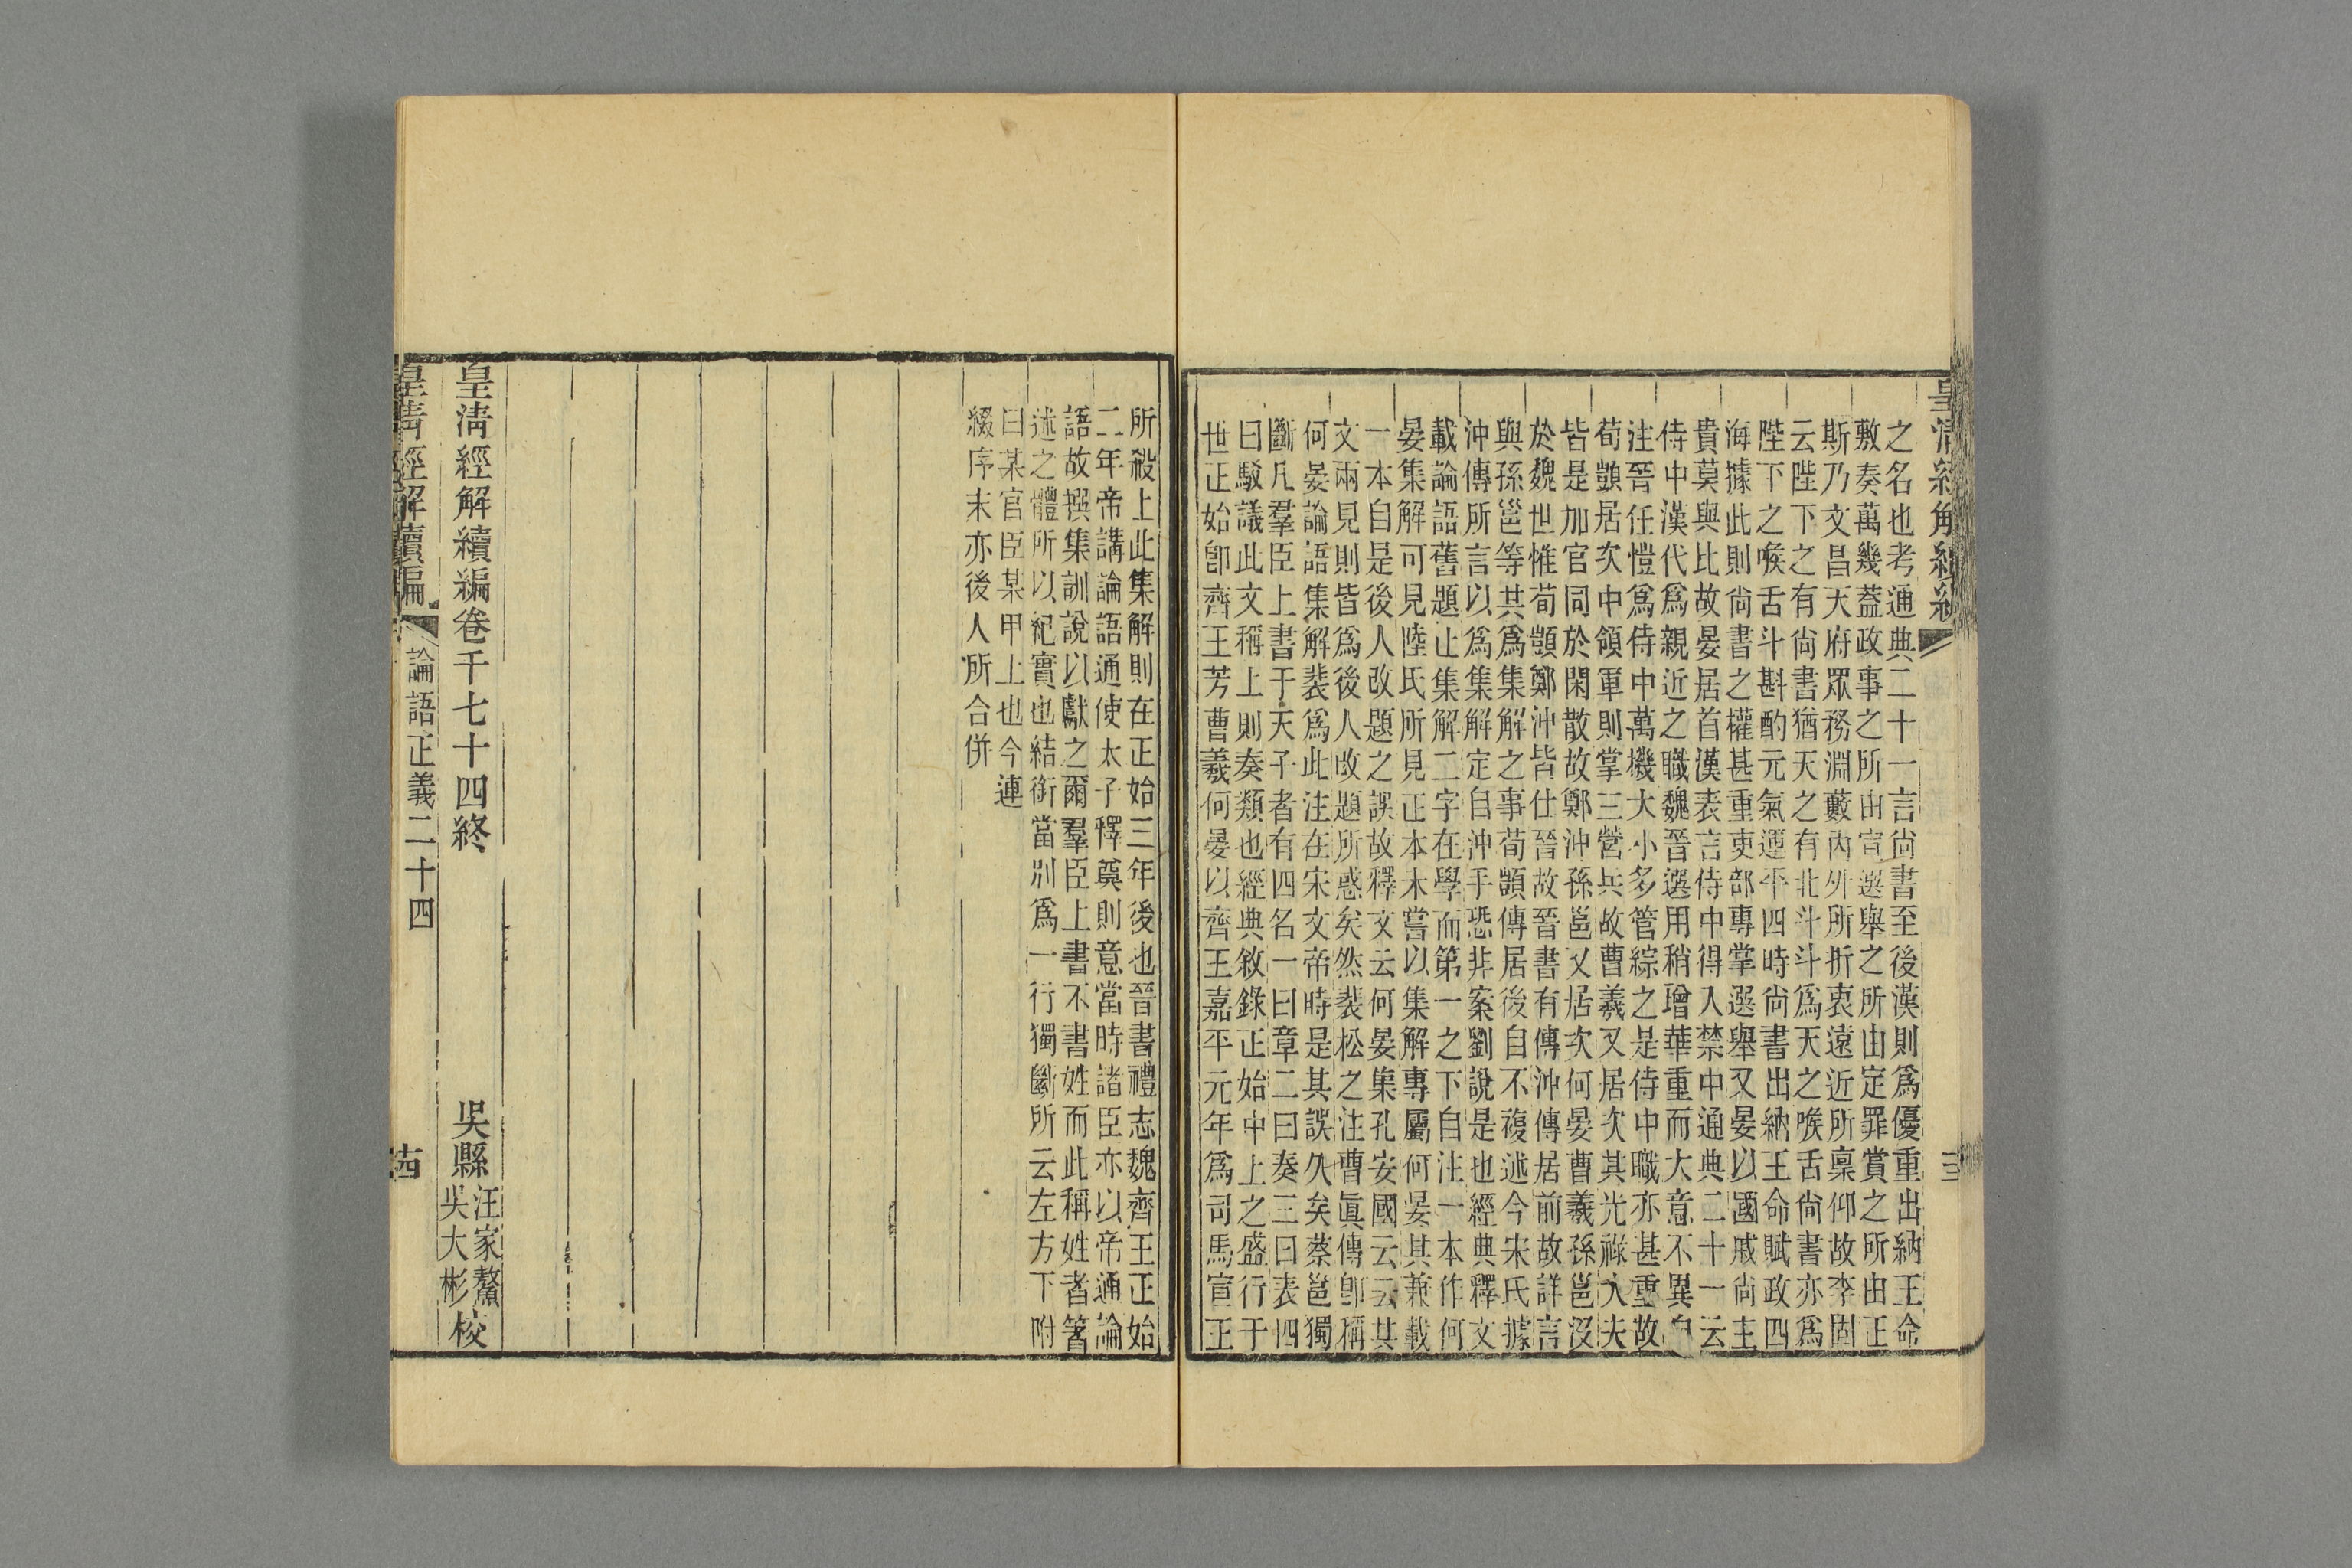 之名也考通典二十一言尙書至後漢則爲優重出納王命
敷奏萬幾葢政事之所由宣選舉之所由定罪賞之所由正
斯乃文昌天府眾務淵藪內外所折衷遠近所稟仰故李固
云陛下之有尙書猶天之有北斗斗爲天之喉舌尙書亦爲
陛下之喉舌斗斟酌元氣運平四時尙書出納王命賦政四
海據此則尙書之權甚重吏部專掌選舉又晏以國戚尙主
貴莫與比故晏居首漢表言侍中得入禁中通典二十一云
侍中漢代爲親近之職魏晉選用稍增華重而大意不異
注晉任愷爲侍中萬機大小多管綜之是侍中職亦甚重故
荀顗居次中領軍則掌三營兵故曹羲又居次其光祿大夫
皆是加官同於閑散故鄭沖孫邕又居次何晏曹羲孫邕沒
於魏世惟荀顗鄭沖皆仕晉故晉書有傳沖傳居前故詳言
與孫邕等其爲集解之事荀顗傳居後自不複述今宋氏據
沖傳所言以爲集解定自沖手恐非案劉說是也經典釋文
載論語舊題止集解二字在學而第一之下自注一本作何
晏集解可見陸氏所見正本未嘗以集解專屬何晏其兼載
一本自是後人改題之誤故釋文云何晏集孔安國云云其
文兩見則皆爲後人改題所惑矣然裴松之注曹眞傳卽稱
何晏論語集解裴爲此注在宋文帝時是其誤久矣蔡邕獨
斷凡羣臣上書于天子者有四名一曰章二曰奏三曰表四
曰駮議此文稱上則奏類也經典敘錄正始中上之盛行于
世正始卽齊王芳曹羲何晏以齊王嘉平元年爲司馬宣王
所殺上此集解則在正始三年後也晉書禮志魏齊王正始
二年帝講論語通使太子釋奠則意當時諸臣亦以帝通論
語故撰集訓說以獻之爾羣臣上書不書姓而此稱姓者箸
述之體所以紀實也結銜當別爲一行獨斷所云左方下附
曰某官臣某甲上也今連
綴序末亦後人所合併
皇淸經解續編卷千七十四終
吳縣 汪家鰲 吳大彬 校
皇淸經解續編
論語正義二十四